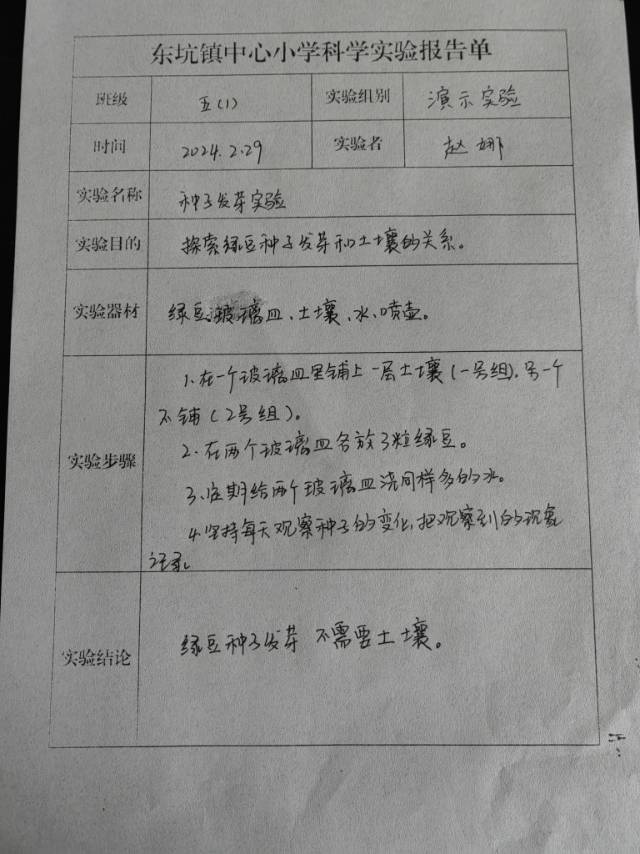 东坑镇中心小学科学实验报告单
班级 五(1) 实验组别 演示实验
时间 2024.2.29 实验者 赵娜
实验名称 种子发芽实验
实验目的 探索绿豆种子发芽和土壤的关系。
实验器材 绿豆、玻璃皿、土壤、水、喷壶。
实验步骤
1.在一个玻璃皿里铺上一层土壤(一号组),另一个
不铺(2号组)。
2.在两个玻璃皿各放3粒绿豆。
3.定期给两个玻璃皿浇同样多的水。
4.坚持每天观察种子的变化,把观察到的现象
记录。
实验结论 绿豆种子发芽不需要土壤。